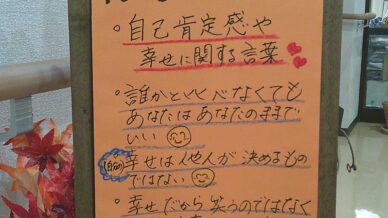 。自己肯定感や
幸せに関する言葉
。誰かと比べなくても
あなたはあなたのままで
いい
自分の 幸せは他人が決めるもの
ではない
。幸せだから笑うのではなく